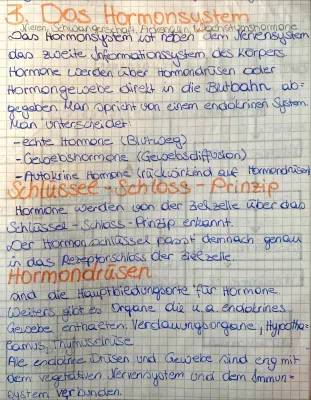 3. Das Hormonsystem
Nieren, Schwangerschaft, Adrenalin, Wachstumshormone
Das Hormonsystem ist neben dem Nervensystem
das zweite Informationssystem des Körpers
Hormone werden über Hormondrüsen oder
Hormongewebe direkt in die Blutbahn ab=
gegeben. Man spricht von einem endokrinen System.
Man unterscheidet:
-echte Hormone (Blutweg)
-Gewebshormone (Gewebsdiffusion)
-Autokrine Hormone (rückwirkend auf Hormondrüsen)
Schlüssel-Schloss-Prinzip
Hormone werden von der Zielzelle über das
Schlüssel-Schloss-Prinzip erkannt.
Der Hormonschlüssel passt demnach genau
in das Rezeptorschloss der Zielzelle.
Hormondrüsen
sind die Hauptbildungsorte für Hormone
Weiters gibt es Organe die u.a. endokrines
Gewebe enthalten: Verdauungsorgane, Hypotha=
lamus, Thymusdrüse
Alle endokrine Drüsen und Gewebe sind eng mit
dem vegetativen Nervensystem und dem Immun-
system verbunden.